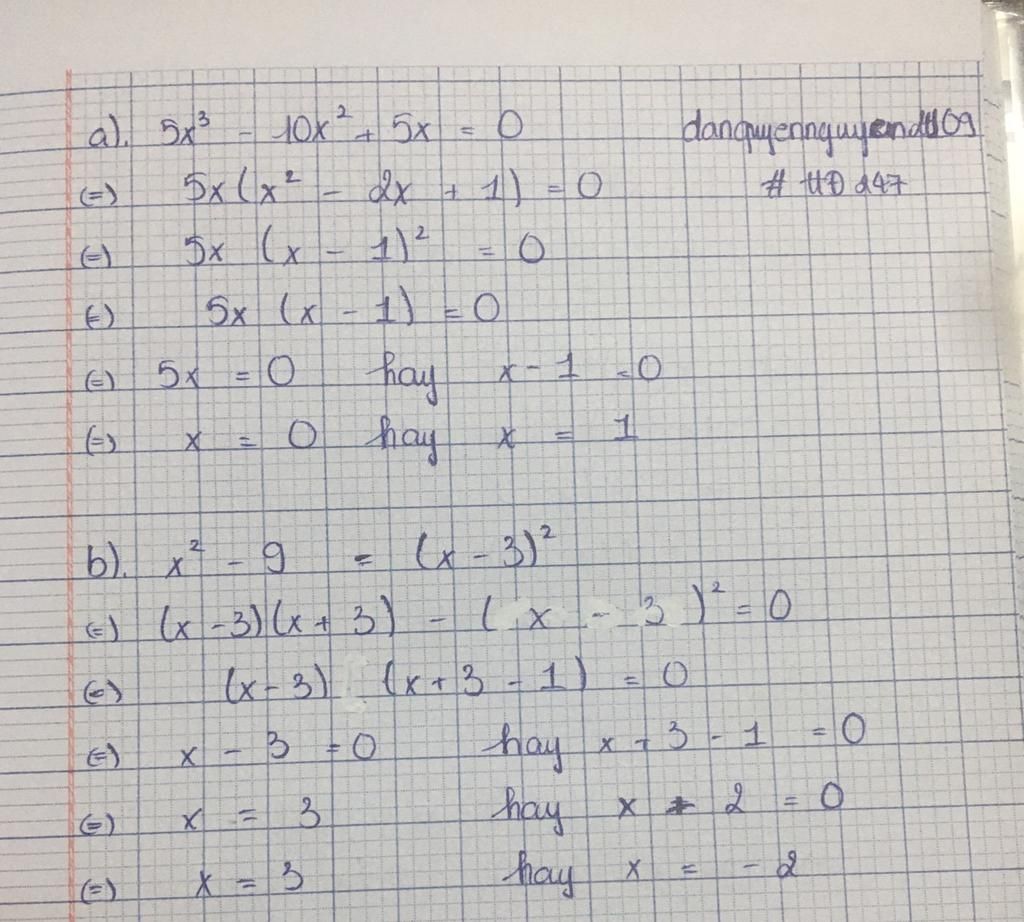 a). 5x³ - 10x² + 5x = 0
(=) 5x(x² - 2x + 1) = 0
# HĐ 247
(=) 5x (x - 1)² = 0
(=) 5x (x - 1) = 0
(=) 5x = 0 hay x - 1 = 0
(=) x = 0 hay x = 1
b). x² - 9 = (x - 3)²
(=) (x - 3)(x + 3) - ( x - 3 )² = 0
(=) (x - 3) (x + 3 - 1) = 0
(=) x - 3 = 0 hay x + 3 - 1 = 0
(=) x = 3 hay x + 2 = 0
(=) x = 3 hay x = - 2